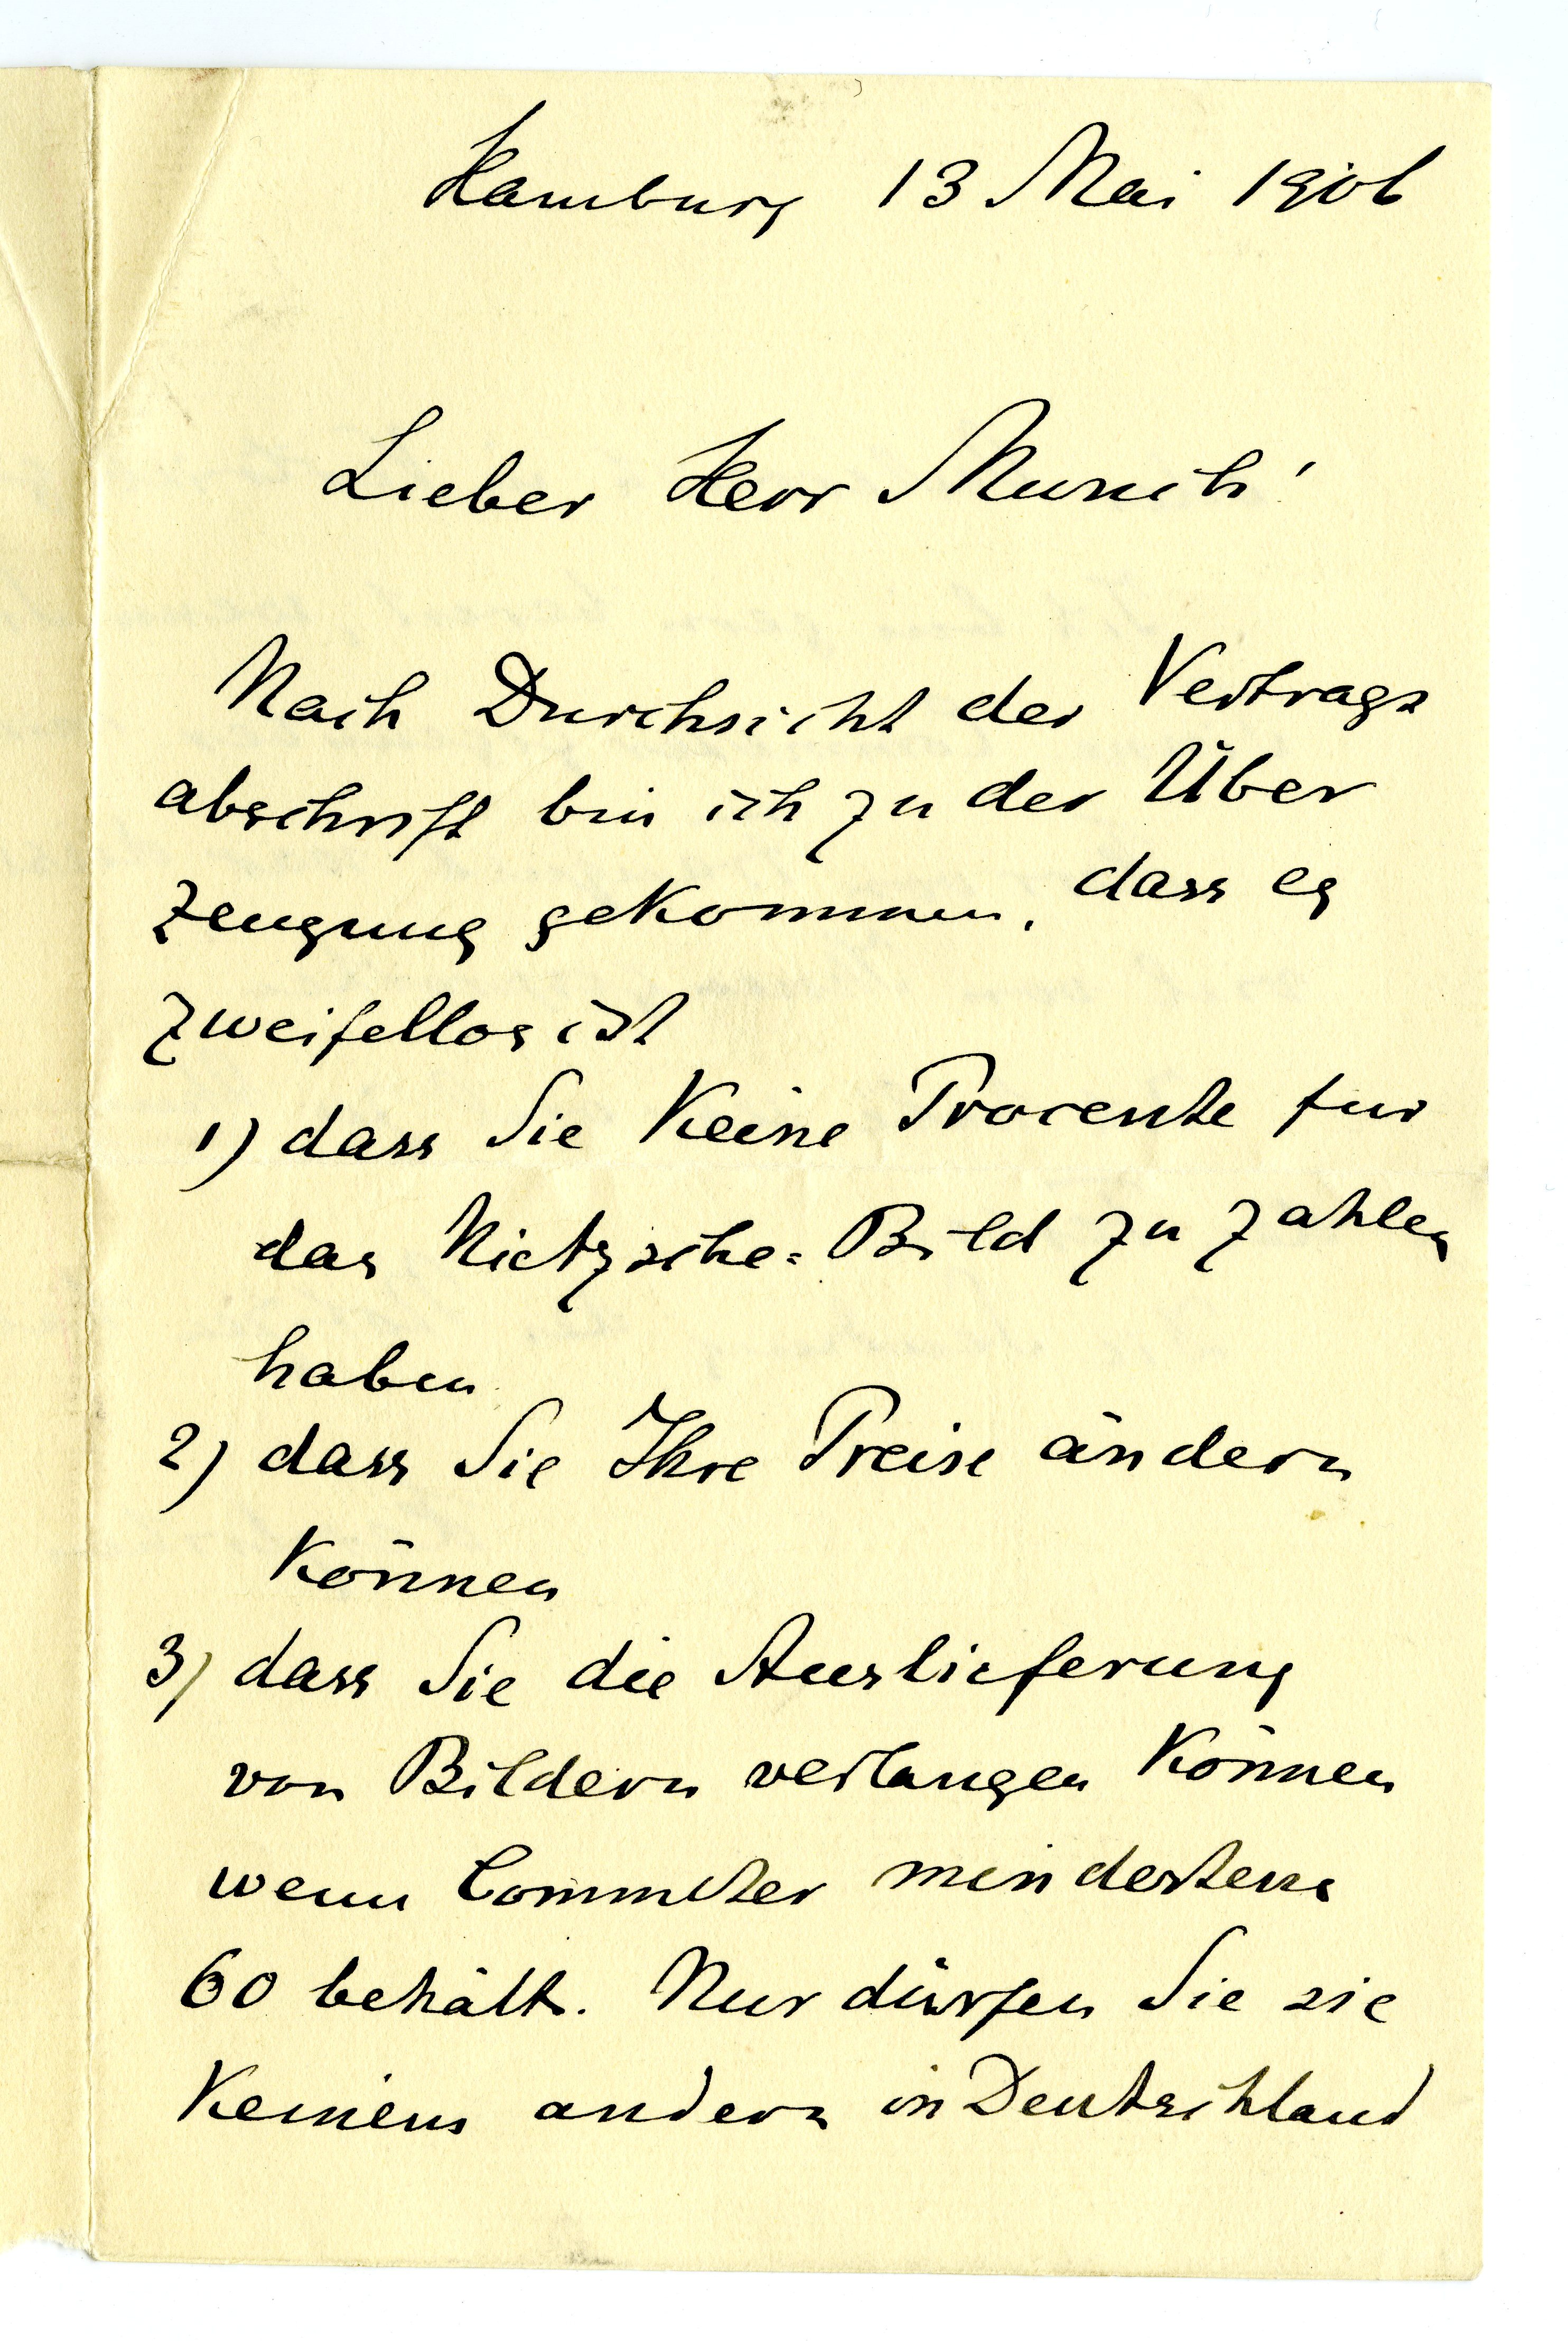 Hamburg 13 Mai 1906
Lieber Herr Munch!
Nach Durchsicht der Vertrags
abschrift bin ich zu der Über
zeugung gekommen, dass es
zweifellos ist
1) dass Sie keine Procente fur
das Nietzsche=Bild zu zahlen
haben
2) dass Sie Ihre Preise ändern
können
3) dass Sie die Auslieferung
von Bildern verlangen können
wenn Commeter mindestens
60 behält. Nur dürfen Sie sie
keinem andern in Deutschland